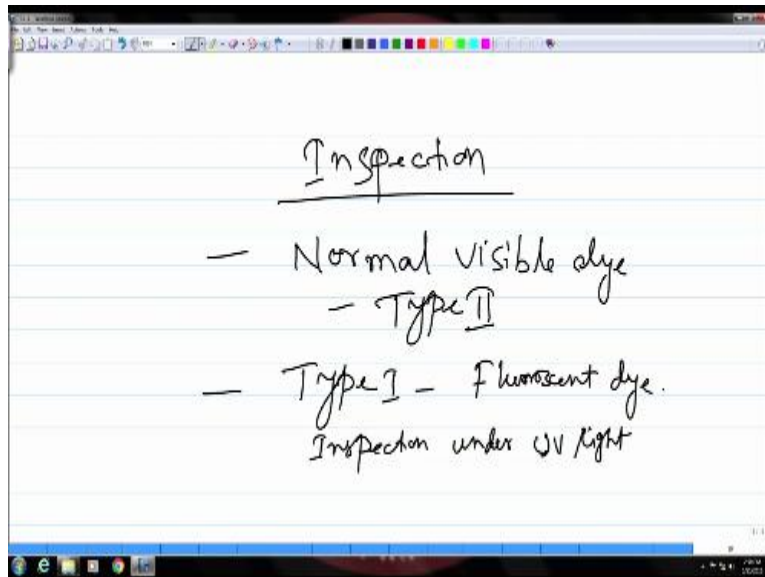 Inspection
— Normal visible dye
— Type II
— Type I — Fluoroscent dye.
Inspection under UV light